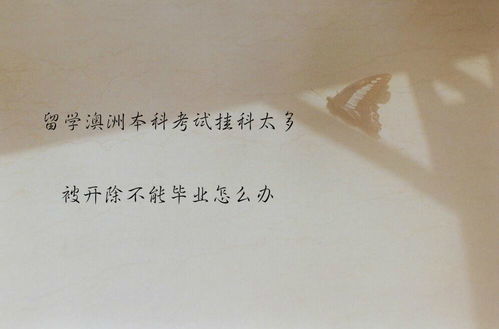 留学澳洲本科考试挂科太多
被开除不能毕业怎么办